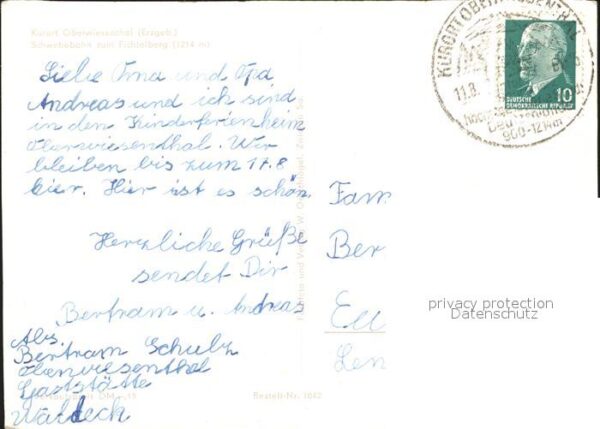 Kurort Oberwiesenthal (Erzgeb.)
Schwebebahn zum Fichtelberg (1214 m)
Liebe Oma und Opa
Andreas und ich sind
in den Kinderferienheim
Oberwiesenthal. Wir
bleiben bis zum 17.8
hier. Hier ist es schön.
Herzliche Grüße
sendet Dir
Bertram u. Andreas
Abs.
Bertram Schulz
Oberwiesenthal
Gaststätte
Waldeck
Bestell-Nr. 1042
KURORT OBERWIESENTHAL
11.8.
900-1214m
DEUTSCHE
DEMOKRATISCHE REPUBLIK
10
Fam
Ber
Eu
Len
privacy protection
Datenschutz